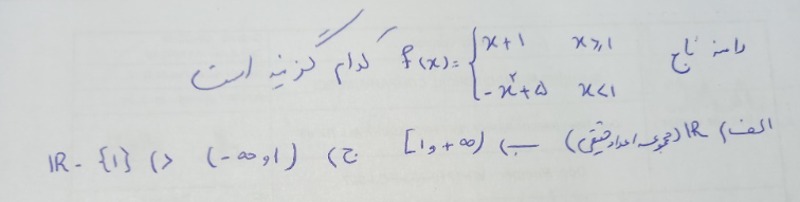 دامنه تابع f(x) = { x+1 x≥1 کدام گزینه است
-x²+5 x<1
الف) IR (مجموعه اعداد حقیقی) ب) [1, +∞) ج) (-∞, 1) د) IR - {1}